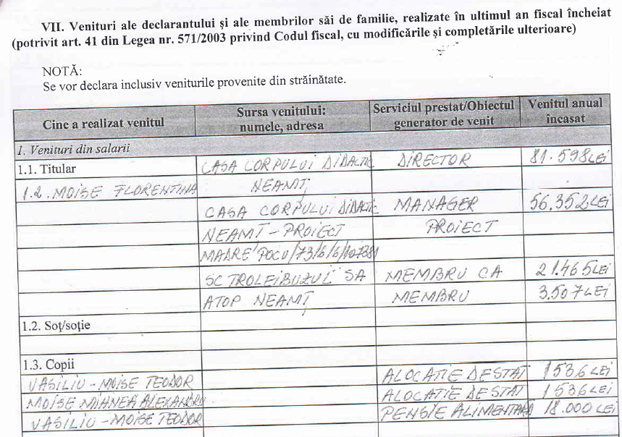 VII. Venituri ale declarantului și ale membrilor săi de familie, realizate în ultimul an fiscal încheiat
(potrivit art. 41 din Legea nr. 571/2003 privind Codul fiscal, cu modificările și completările ulterioare)
NOTĂ:
Se vor declara inclusiv veniturile provenite din străinătate.
Cine a realizat venitul | Sursa venitului: numele, adresa | Serviciul prestat/Obiectul generator de venit | Venitul anual încasat
1. Venituri din salarii
1.1. Titular | CASA CORPULUI DIDACTIC | DIRECTOR | 81.598 LEI
1.2. MOISE FLORENTINA | NEAMȚ
CASA CORPULUI DIDACTIC | MANAGER | 56.352 LEI
NEAMȚ - PROIECT | PROIECT
POCU/73/6/6/
SC TROLEIBUZUL SA | MEMBRU CA | 21.465 LEI
ATOP NEAMȚ | MEMBRU | 3.507 LEI
1.2. Soț/soție
1.3. Copii
VASILIU - MOISE TEODOR | ALOCATIE DE STAT | 1536 LEI
MOISE ALEXANDRU | ALOCATIE DE STAT | 1536 LEI
VASILIU - MOISE TEODOR | PENSIE ALIMENTARA | 18.000 LEI